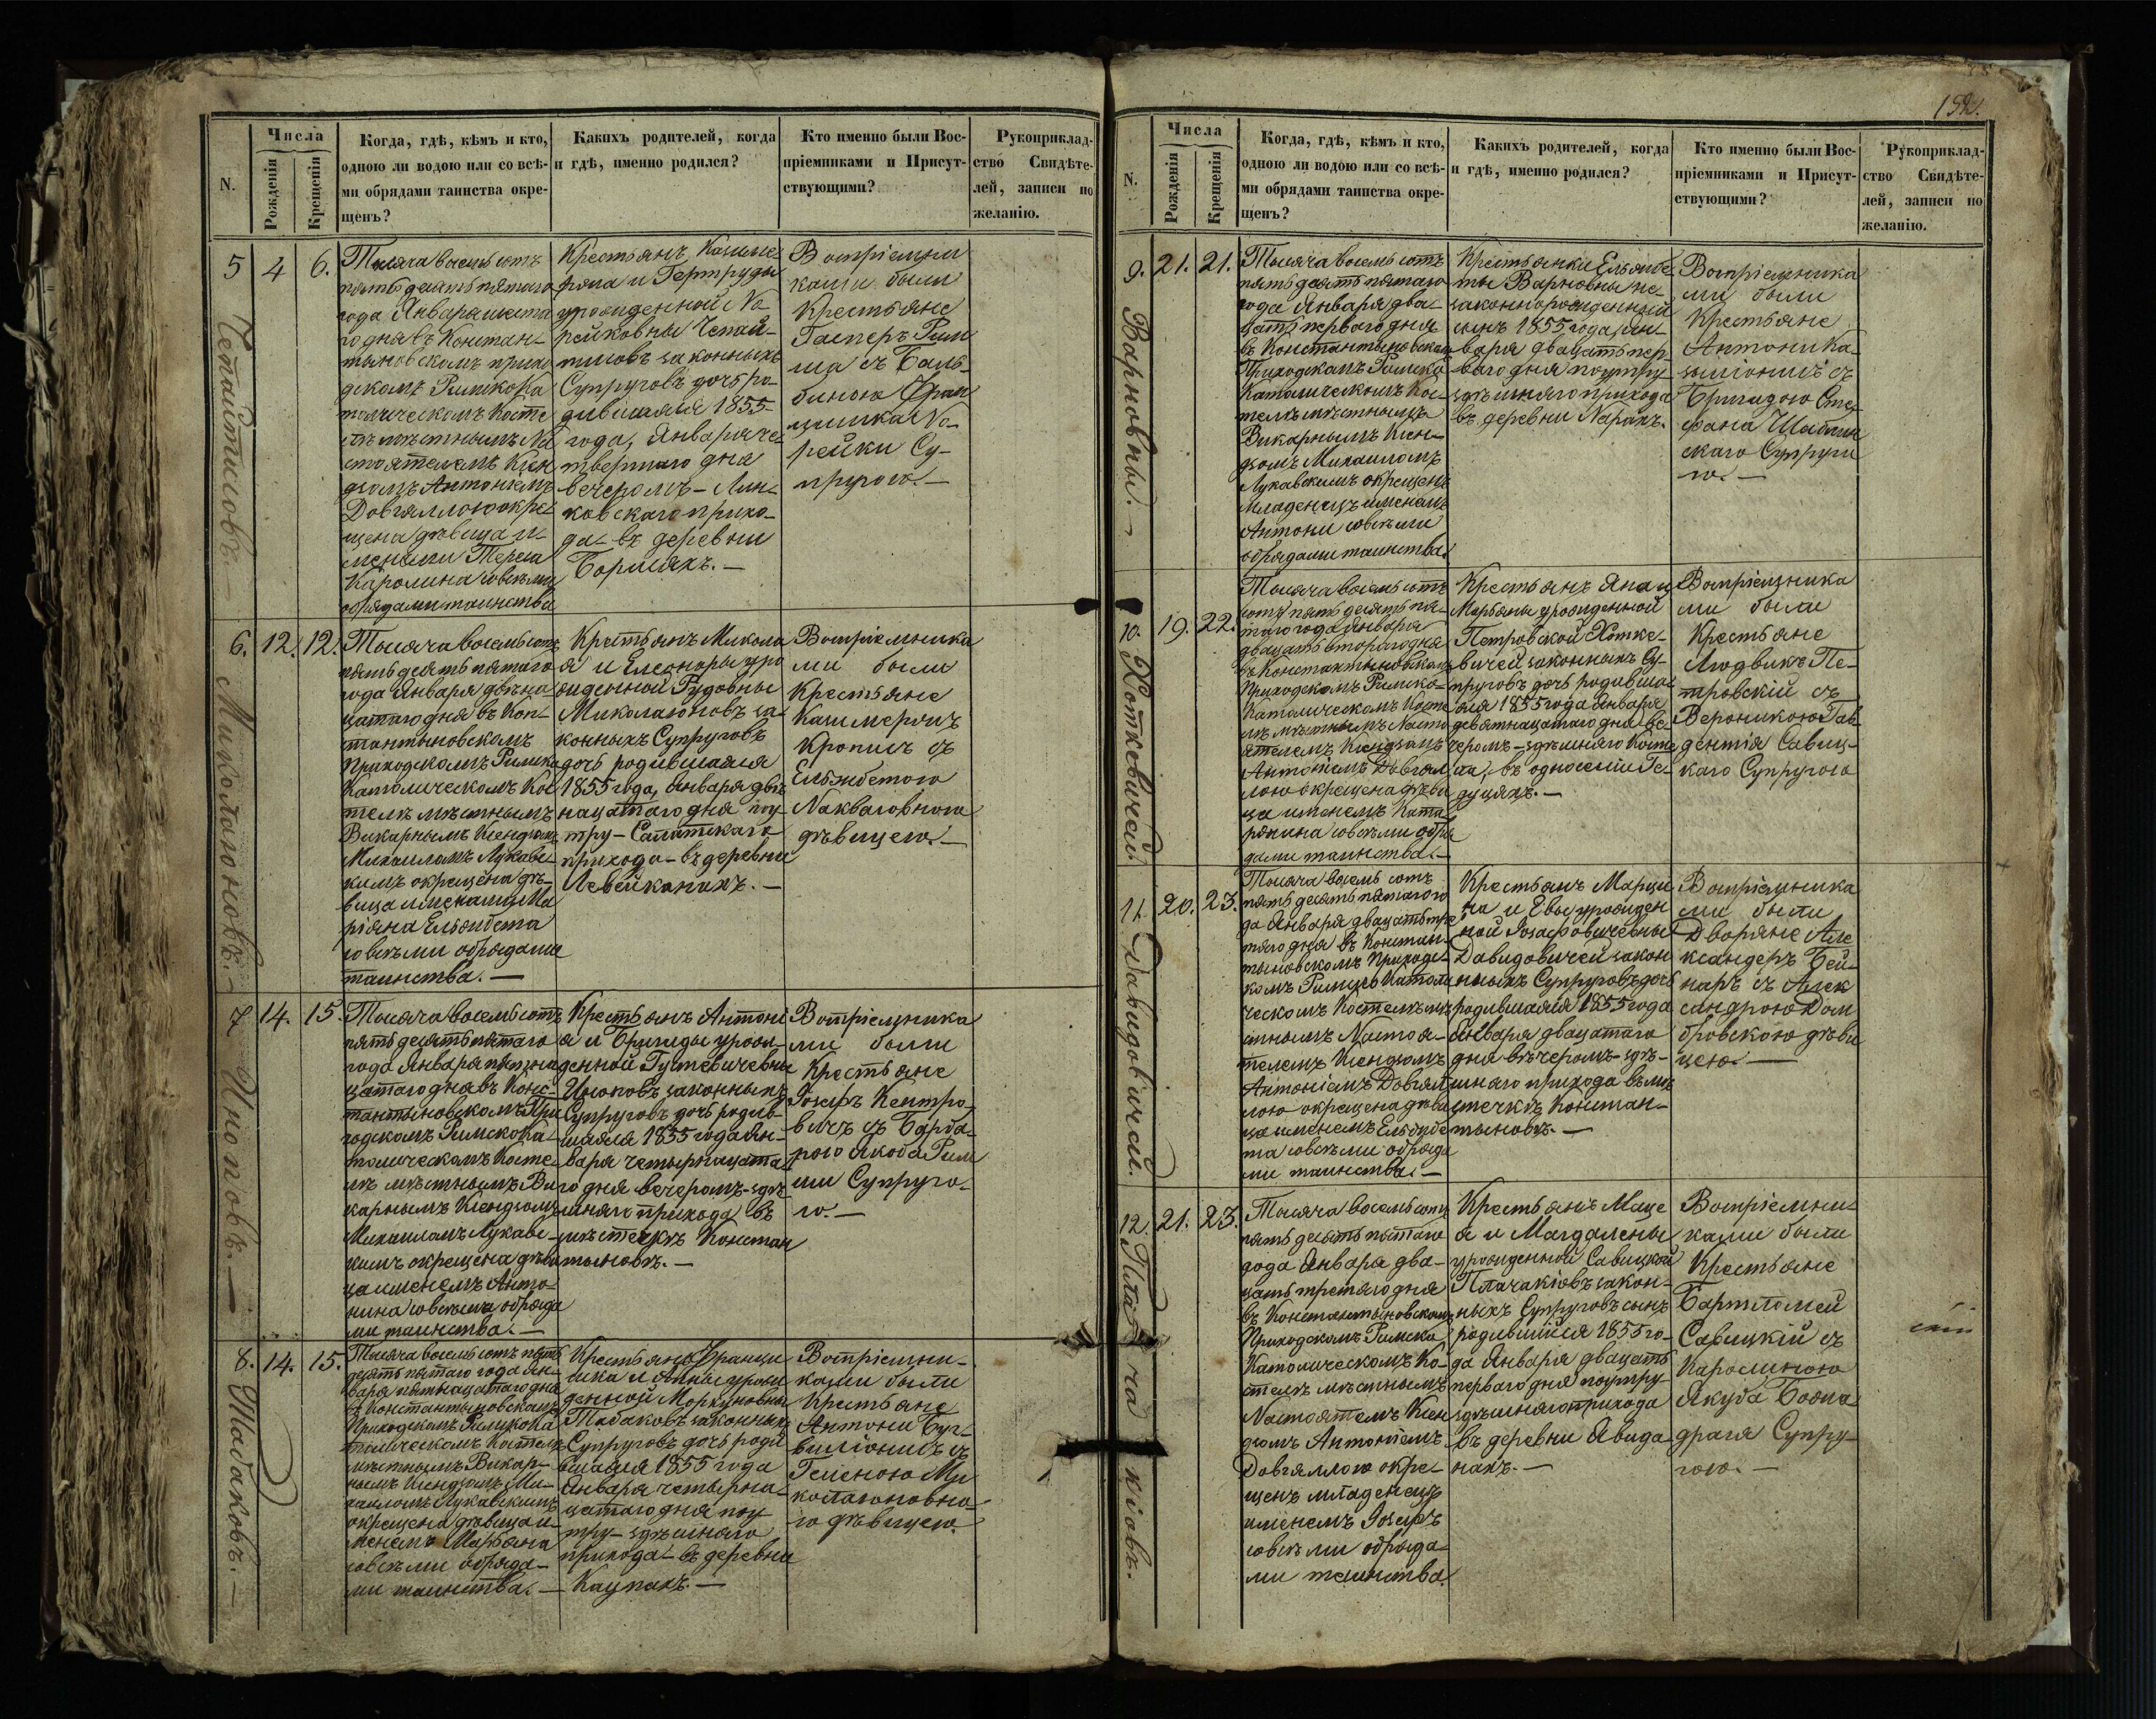 N.
Числа
Рожденія
Крещенія
Когда, гдѣ, кѣмъ и кто,
одною ли водою или со всѣ-
ми обрядами таинства окре-
щенъ?
Какихъ родителей, когда
и гдѣ, именно родился?
Кто именно были Вос-
пріемниками и Присут-
ствующими?
Рукоприклад-
ство Свидѣте-
лей, записи по
желанію.
5
4
6.
Тысяча восемь сотъ
пятьдесятъ пятаго
года Января шеста
го дня въ Констан-
тыновскомъ прихо
дскомъ Римскока
толическомъ Косте
лѣ мѣстнымъ На
стоятелемъ Ксен
дзомъ Антоніемъ
Довгяллою окре
щена дѣвица и-
менами Тереса
Каролина совсѣми
обрядами таинства
Крестьянъ Казиме-
ряна и Гертруды
урожденной No-
рейковны Чепай-
тисовъ законныхъ
Супруговъ дочь ро-
дившаяся 1855-
года, Января че-
твертаго дня
вечеромъ - Лын-
ковскаго прихо-
да - въ деревни
Вопріемни
ками были
Крестьяне
Гасперъ Рим
ша съ Баль-
биною Фран
цишка No-
рейки Су-
пругою. -
Чепайтисовъ
6.
12.
12.
Тысяча восемь сотъ
пятьдесятъ пятаго
года Января двѣна
цатаго дня въ Кон-
стантыновскомъ
Приходскомъ Римско
Католическомъ Кос
телѣ мѣстнымъ
Викарнымъ Ксендзомъ
Михаиломъ Лукавс
кимъ окрещена дѣ-
вица именами Ма
ріяна Ельжбета
совсѣми обрядами
таинства. -
Крестьянъ Микола
я и Елеоноры уро
жденной Рудовны
Миколаюновъ за-
конныхъ Супруговъ
дочь родившаяся
1855 года, Января двѣ
нацатаго дня поу-
тру - Салятскаго
прихода - въ деревни
Левейканахъ. -
Вопріемника
ми были
Крестьяне
Казимерчъ
Кропись съ
Ельжбетою
Накваговною
дѣвицею. -
Миколаюновъ. -
7
14.
15.
Тысяча восемь сотъ
пятьдесятъ пятаго
года Января пятна
цатаго дня въ Конс-
тантыновскомъ При
ходскомъ РимскоКа-
толическомъ Косте-
лѣ мѣстнымъ Ви
карнымъ Ксендзомъ
Михаиломъ Лукавс-
кимъ окрещена дѣви
ца именемъ Анто-
нина совсѣми обряда
ми таинства. -
Крестьянъ Антоні
я и Бригиды урож-
денной Гуцевичевны
Иноковъ законныхъ
Супруговъ дочь родив-
шаяся 1855 года Ян-
варя четырнацата
го дня вечеромъ - здѣ
шняго прихода въ
мѣстечкѣ Констан
тыновѣ. -
Вопріемника
ми были
Крестьяне
Іозефъ Кептро-
вичъ съ Барба-
рою Якоба Рим
ши Супруго-
ю. -
8.
14.
15.
Тысяча восемь сотъ пять
десятъ пятаго года Ян-
варя пятнацатаго дня
въ Константыновскомъ
Приходскомъ РимскоКа
толическомъ Костелѣ
мѣстнымъ Викар-
нымъ Ксендзомъ Ми-
хаиломъ Лукавскимъ
окрещена дѣвица и-
менемъ Марьяна
совсѣми обряда-
ми таинства. -
Крестьянъ Франци
шка и Анны урож
денной Моркуновны
Табаковъ законныхъ
Супруговъ дочь роди
вшаяся 1855 года
Января четырна-
цатаго дня поу
тру - здѣшняго
прихода - въ деревни
Каупахъ. -
Вопріемни-
ками были
Крестьяне
Антони Буг-
виліонисъ съ
Геленою Ми
колаюновно-
ю дѣвицею.
Табаковъ. -
152.
N.
Числа
Рожденія
Крещенія
Когда, гдѣ, кѣмъ и кто,
одною ли водою или со всѣ-
ми обрядами таинства окре-
щенъ?
Какихъ родителей, когда
и гдѣ, именно родился?
Кто именно были Вос-
пріемниками и Присут-
ствующими?
Рукоприклад-
ство Свидѣте-
лей, записи по
желанію.
9.
21.
21.
Тысяча восемь сотъ
пятьдесятъ пятаго
года Января два-
цать перваго дня
въ Константыновскомъ
Приходскомъ Римско
Католическомъ Кос-
телѣ мѣстнымъ
Викарнымъ Ксен-
дзомъ Михаиломъ
Лукавскимъ окрещенъ
младенецъ именемъ
Антони совсѣми
обрядами таинства.
Крестьянки Ельжбе-
ты Варновны не-
законнорожденный
сынъ 1855 года, Ян-
варя двацать пер-
ваго дня поутру-
здѣшняго прихода
въ деревни Nарахъ.
Вопріемника
ми были
Крестьяне
Антони Ка-
зиліонисъ съ
Бригидою Сте-
фана Шатин
скаго Супруги
ю. -
Варновны. -
10.
19.
22.
Тысяча восемь сотъ
сотъ пятьдесятъ пя-
таго года Января
двацать втораго дня
въ Константыновскомъ
Приходскомъ Римско-
Католическомъ Косте
лѣ мѣстнымъ Насто
ятелемъ Ксендзомъ
Антоніемъ Довгял
лою окрещена дѣви
ца именемъ Ката
ряина совсѣми обря
дами таинства. -
Крестьянъ Яна и
Марьяны урожденной
Петровской Хотке-
вичей законныхъ Су-
пруговъ дочь родивша
яся 1855 года Января
девятнацатаго дня ве-
черомъ - здѣшняго Косте
ла, въ односеліи Ге-
дуцяхъ. -
Вопріемника
ми были
Крестьяне
Людвикъ Пе-
тровскій съ
Вероникою Гав
дентія Савиц-
каго Супругою
Хоткевичей
11.
20.
23.
Тысяча восемь сотъ
пятьдесятъ пятаго го
да Января двацать тре
тяго дня въ Констан-
тыновскомъ Приходс-
комъ Римско Католи
ческомъ Костелѣ мѣ
стнымъ Настоя-
телемъ Ксендзомъ
Антоніемъ Довгял
лою окрещена дѣви
ца именемъ Ельжбе
та совсѣми обряда
ми таинства. -
Крестьянъ Марци
на и Евы урожден
ной Іозафовичевны
Давидовичей закон
ныхъ Супруговъ дочь
родившаяся 1855 года
Января двацатаго
дня вечеромъ - здѣ-
шняго прихода въ мѣ
стечкѣ Констан-
тыновѣ. -
Вопріемника
ми были
Дворяне Але
ксандеръ Бей-
наръ съ Алек
сандрою Дом
бровскою дѣви
цею. -
Давидовичей.
12.
21.
23.
Тысяча восемь сотъ
пятьдесятъ пятаго
года Января два-
цать третяго дня
въ Константыновскомъ
Приходскомъ Римско
Католическомъ Ко-
стелѣ мѣстнымъ
Настоятелемъ Ксен
дзомъ Антоніемъ
Довгяллою окре-
щенъ младенецъ
именемъ Іозефъ
совсѣми обряда-
ми таинства.
Крестьянъ Маце
я и Магдалены
урожденной Савицкой
Плачакіовъ закон-
ныхъ Супруговъ сынъ
родившійся 1855 го-
да Января двацать
перваго дня поутру
здѣшняго прихода
въ деревни Явида-
нахъ. -
Вопріемни-
ками были
Крестьяне
Бартломей
Савицкій съ
Каролиною
Якуба
Супру-
гою. -